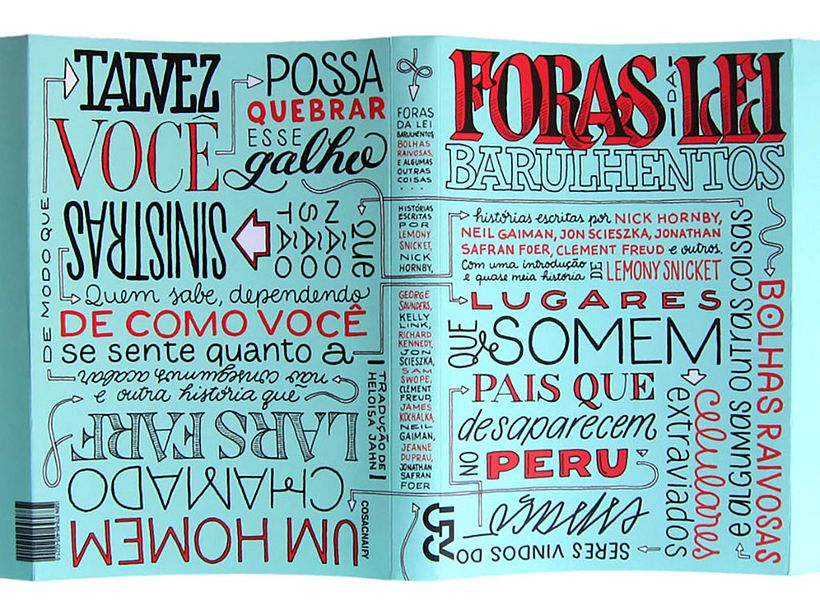 TALVEZ
VOCÊ
POSSA
QUEBRAR
ESSE
galho
DE MODO QUE
SINISTRAS
QUE
NÃO
SÃO
TÃO
Quem sabe, dependendo
DE COMO VOCÊ
se sente quanto a
não conseguimos acabar
e outra história que
LARS FARF
CHAMADO
UM HOMEM
TRADUÇÃO DE
HELOISA JAHN
COSACNAIFY
FORAS
DA LEI
BARULHENTOS,
BOLHAS
RAIVOSAS,
E ALGUMAS
OUTRAS
COISAS
...
HISTÓRIAS
ESCRITAS
POR
LEMONY
SNICKET,
NICK
HORNBY,
GEORGE
SAUNDERS,
KELLY
LINK,
RICHARD
KENNEDY,
JON
SCIESZKA,
SAM
SWOPE,
CLEMENT
FREUD,
JAMES
KOCHALKA,
NEIL
GAIMAN,
JEANNE
DUPRAU,
JONATHAN
SAFRAN
FOER
FORAS DA LEI
BARULHENTOS
histórias escritas por NICK HORNBY,
NEIL GAIMAN, JON SCIESZKA, JONATHAN
SAFRAN FOER, CLEMENT FREUD e outros.
Com uma introdução
e quase meia história DE LEMONY SNICKET
LUGARES
QUE se SOMEM
PAIS QUE
desaparecem
NO PERU
SERES VINDOS DO
espaço
celulares
extraviados
BOLHAS RAIVOSAS
e ALGUMAS OUTRAS COISAS